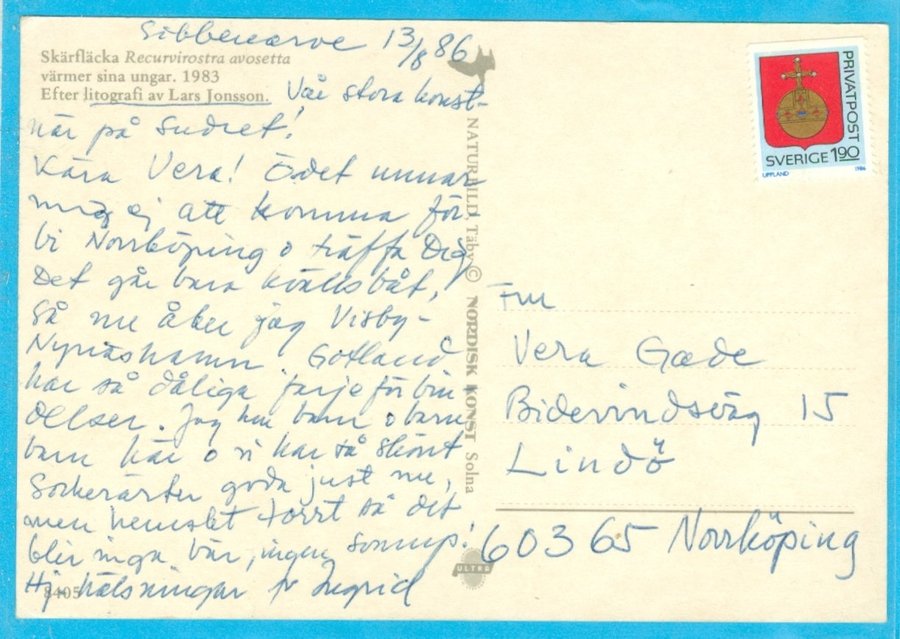 Sibbenarve 13/8 86
Skärfläcka Recurvirostra avosetta
värmer sina ungar. 1983
Efter litografi av Lars Jonsson.
Vår stora konst-
när på Sudret!
Kära Vera! Ödet unnar
mig ej att komma för-
bi Norrköping o träffa Dig
Det går bara kvällsbåt,
så nu åker jag Visby-
Nynäshamn. Gotland
har så dåliga färjeförbin
delser. Jag har barn o barn
barn här o vi har så skönt
Sockerärter goda just nu,
men hemskt torrt så det
blir inga bär, ingen svamp!
Hj. hälsningar fr Ingrid
8405
NATURBILD, Täby © NORDISK KONST Solna
ULTRA
PRIVATPOST
SVERIGE 1.90
UPPLAND 1986
Fru
Vera Gæde
Bidevindsväg 15
Lindö
60365 Norrköping